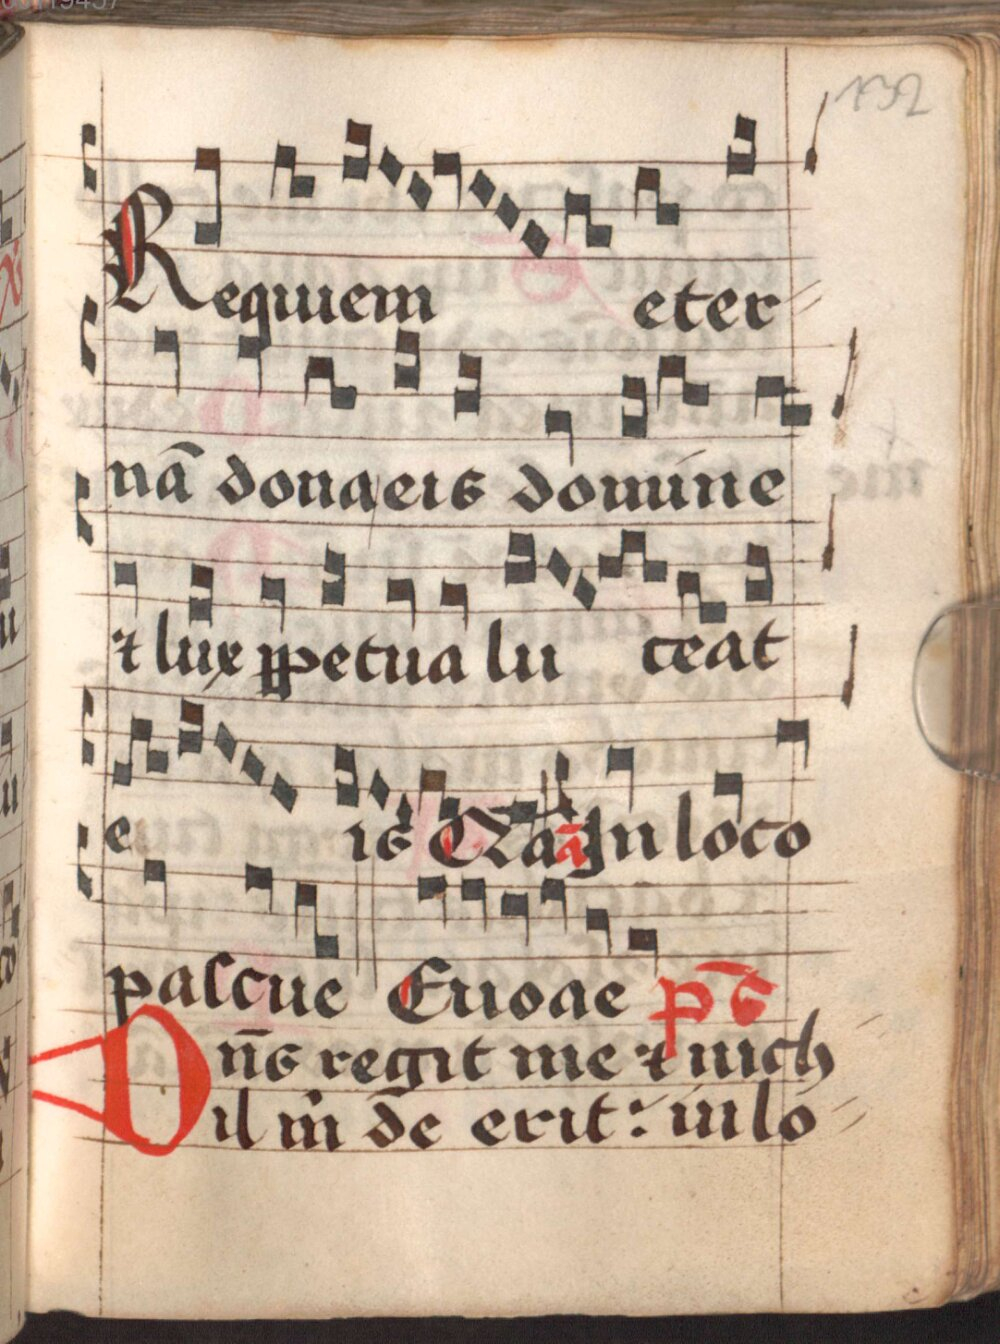 132
Requiem eter
nā dona eis domine
⁊ lux ꝑpetua lu ceat
e is A ā In loco
pascue Euoae ps̄
Dn̄s regit me ⁊ nich
il m̄ de erit: in lo